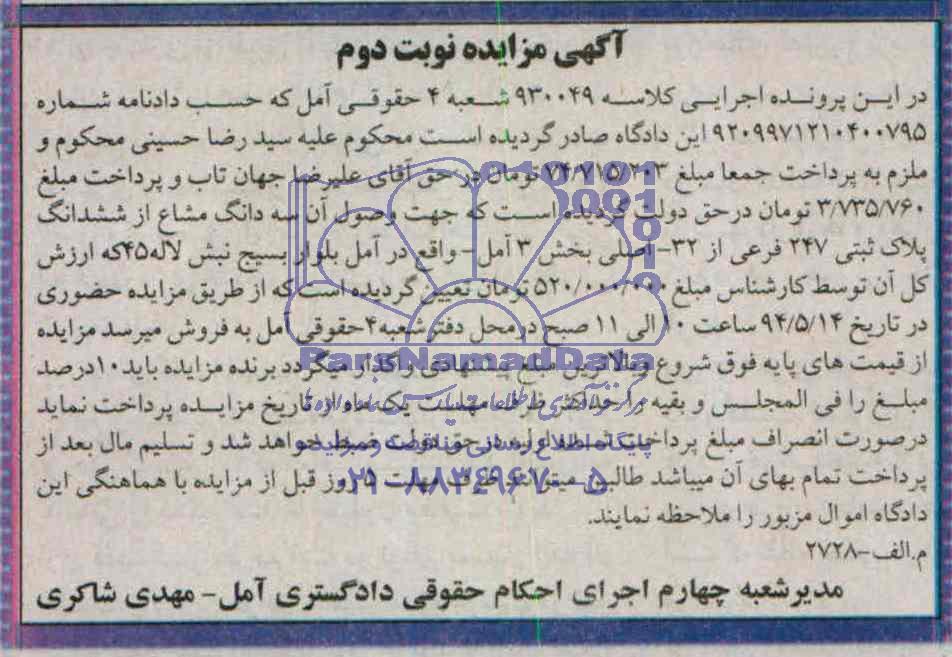 آگهی مزایده نوبت دوم
در این پرونده اجرایی کلاسه ۹۳۰۰۴۹ شعبه ۴ حقوقی آمل که حسب دادنامه شماره
۹۲۰۹۹۷۱۲۱۰۴۰۰۷۹۵ این دادگاه صادر گردیده است محکوم علیه سید رضا حسینی محکوم و
ملزم به پرداخت جمعا مبلغ ۷۴/۷۱۵/۲۰۳ تومان در حق آقای علیرضا جهان تاب و پرداخت مبلغ
۳/۷۳۵/۷۶۰ تومان درحق دولت گردیده است که جهت وصول آن سه دانگ مشاع از ششدانگ
پلاک ثبتی ۲۴۷ فرعی از ۳۲- اصلی بخش ۳ آمل- واقع در آمل بلوار بسیج نبش لاله۴۵که ارزش
کل آن توسط کارشناس مبلغ ۵۲۰/۰۰۰/۰۰۰ تومان تعیین گردیده است که از طریق مزایده حضوری
در تاریخ ۹۴/۵/۱۴ ساعت ۱۰ الی ۱۱ صبح درمحل دفترشعبه۴حقوقی آمل به فروش میرسد مزایده
از قیمت های پایه فوق شروع وبالاترین مبلغ پیشنهادی واگذار میگردد برنده مزایده باید۱۰درصد
مبلغ را فی المجلس و بقیه را حداکثر ظرف مهلت یک ماه از تاریخ مزایده پرداخت نماید
درصورت انصراف مبلغ پرداخت شده اولیه در حق دولت ضبط خواهد شد و تسلیم مال بعد از
پرداخت تمام بهای آن میباشد طالبین میتوانند ظرف مهلت ۵ روز قبل از مزایده با هماهنگی این
دادگاه اموال مزبور را ملاحظه نمایند.
م.الف-۲۷۲۸
مدیرشعبه چهارم اجرای احکام حقوقی دادگستری آمل- مهدی شاکری
ParsNamadData
پایگاه اطلاع رسانی مناقصه و مزایده
۰۲۱-۸۸۳۴۹۶۷۰-۵